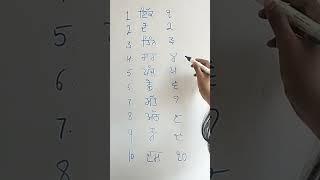 1 ਇੱਕ ੧
2 ਦੋ ੨
3 ਤਿੰਨ ੩
4 ਚਾਰ ੪
5 ਪੰਜ ੫
6 ਛੇ ੬
7 ੭
8 ਅੱਠ ੮
9 ਨੌਂ ੯
10 ਦਸ ੧੦